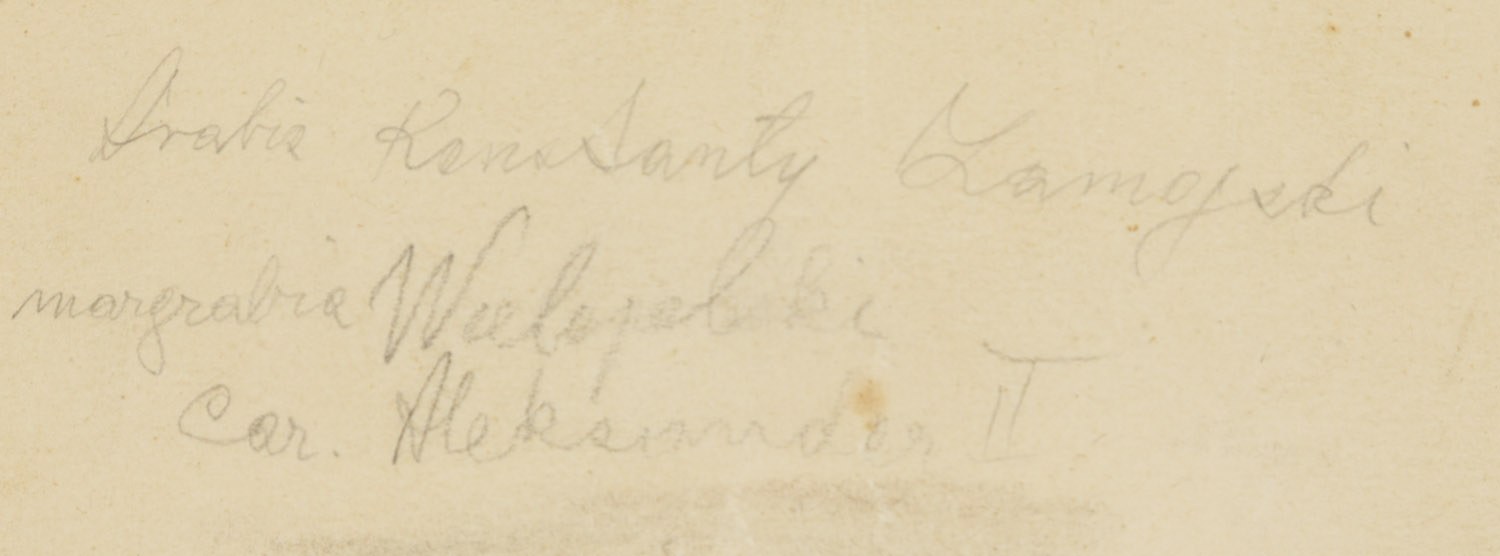 Hrabia Konstanty Zamojski
margrabia Wielopolski
Car. Aleksander II